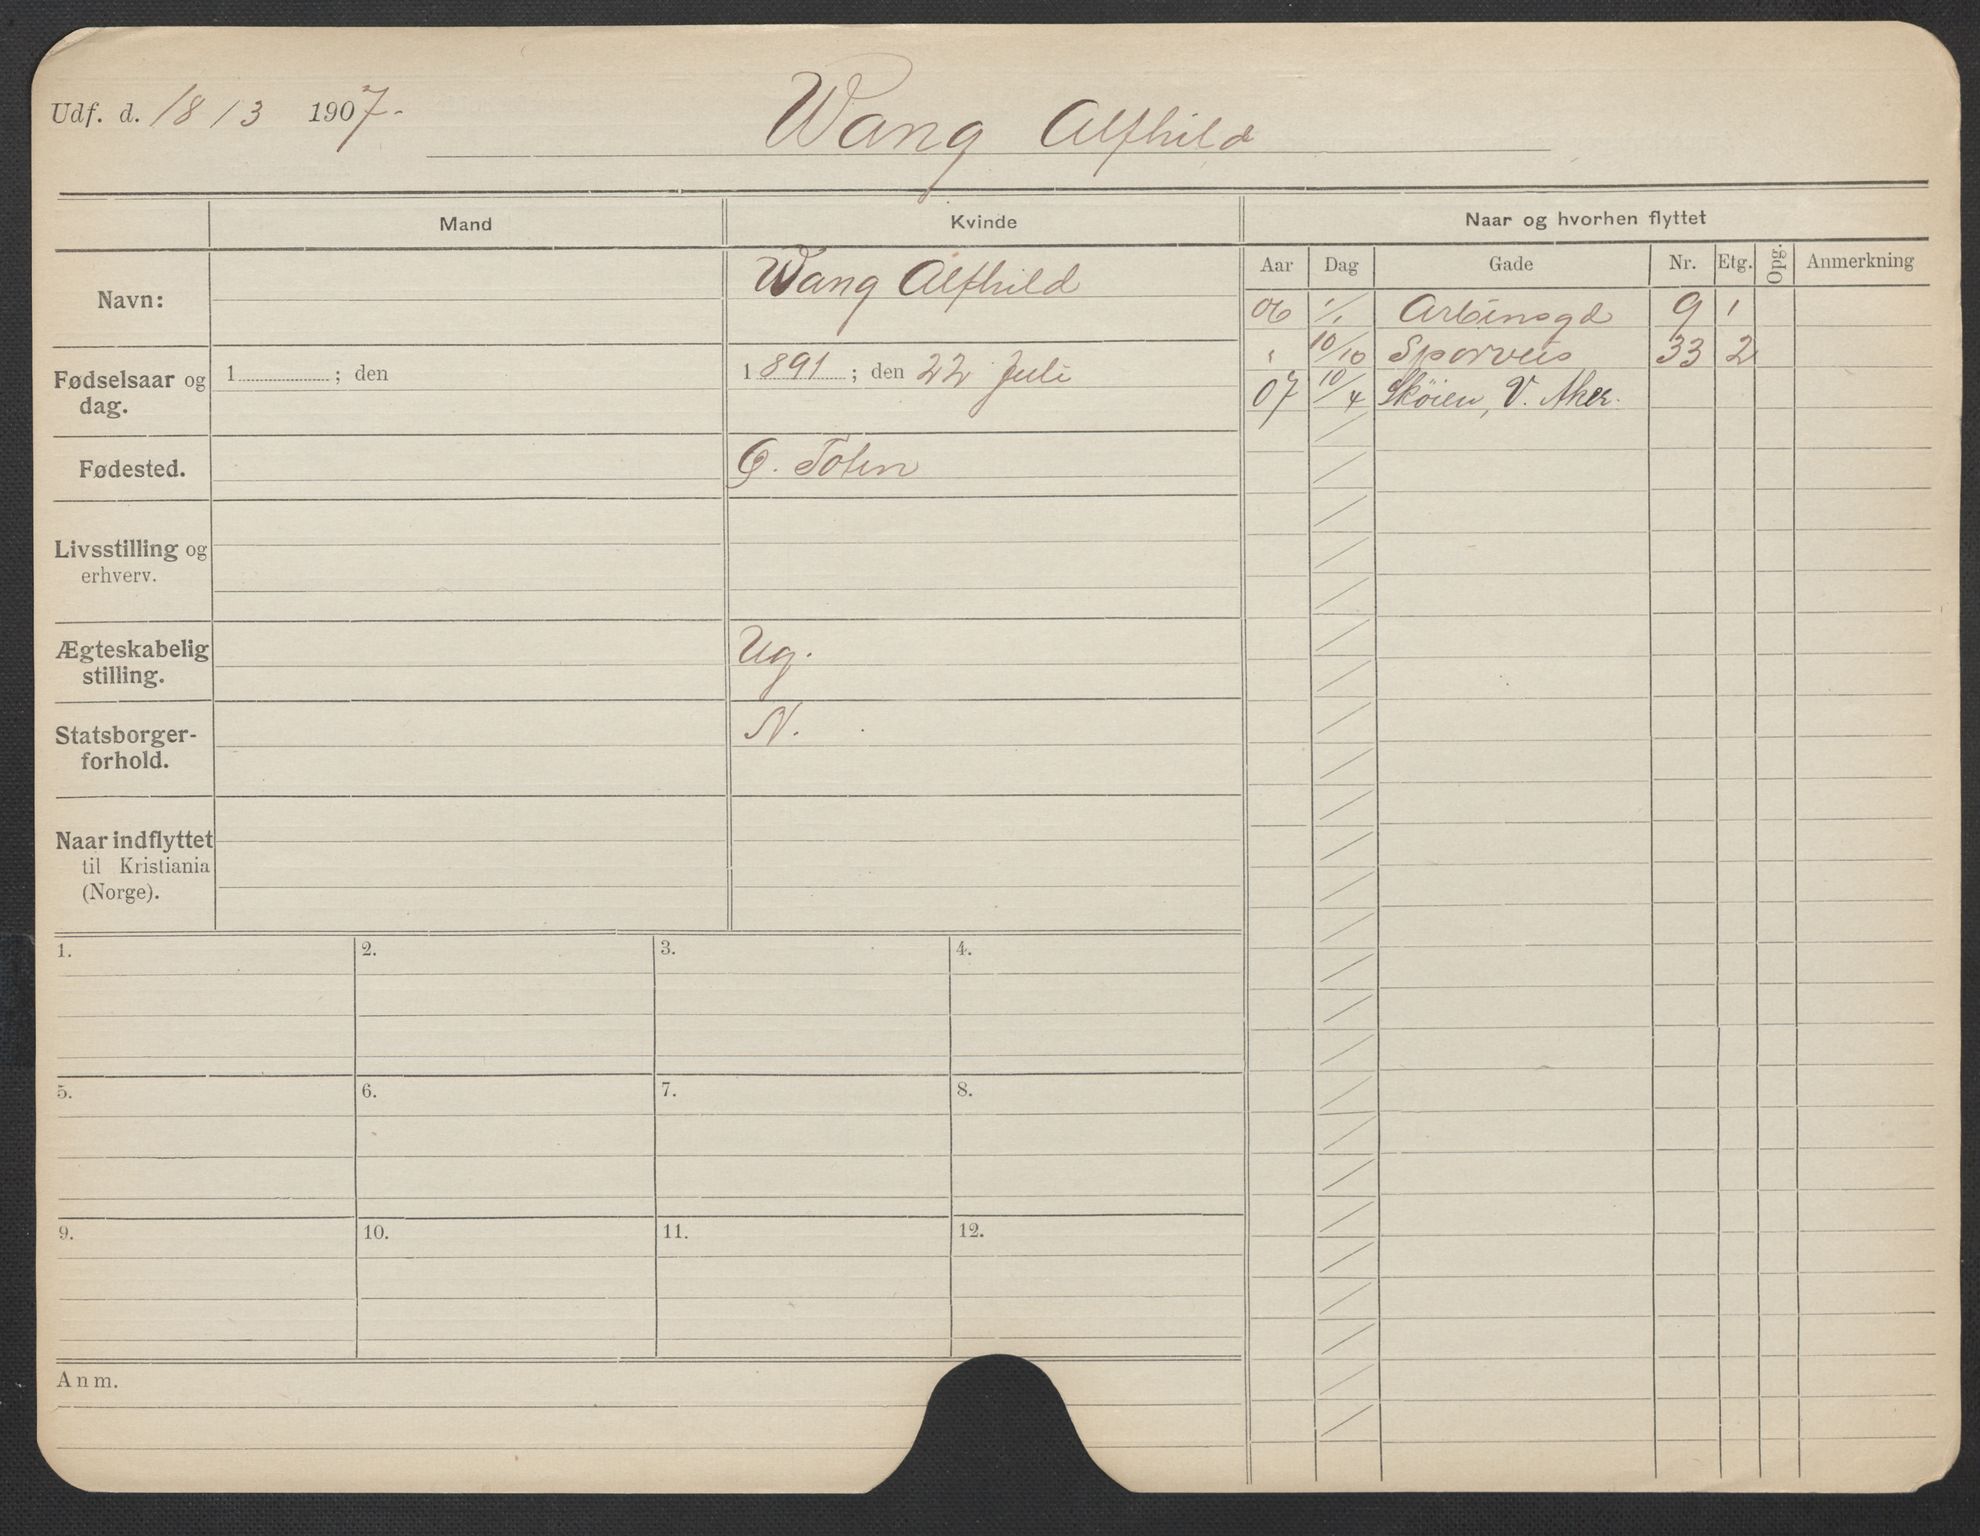 Udf. d. 18/3 1907.-
Wang Alfhild
Mand
Kvinde
Naar og hvorhen flyttet
Aar Dag Gade Nr. Etg. Opg. Anmerkning
Navn:
Wang Alfhild
06 1/1 Arbinsgd 9 1
" 10/10 Sporveis 33 2
07 10/4 Skøien, V. Aker.
Fødselsaar og
dag.
1 ; den
1891 ; den 22 Juli
Fødested.
Ø. Toten
Livsstilling og
erhverv.
Ægteskabelig
stilling.
Ug.
Statsborger-
forhold.
N.
Naar indflyttet
til Kristiania
(Norge).
1. 2. 3. 4.
5. 6. 7. 8.
9. 10. 11. 12.
Anm.